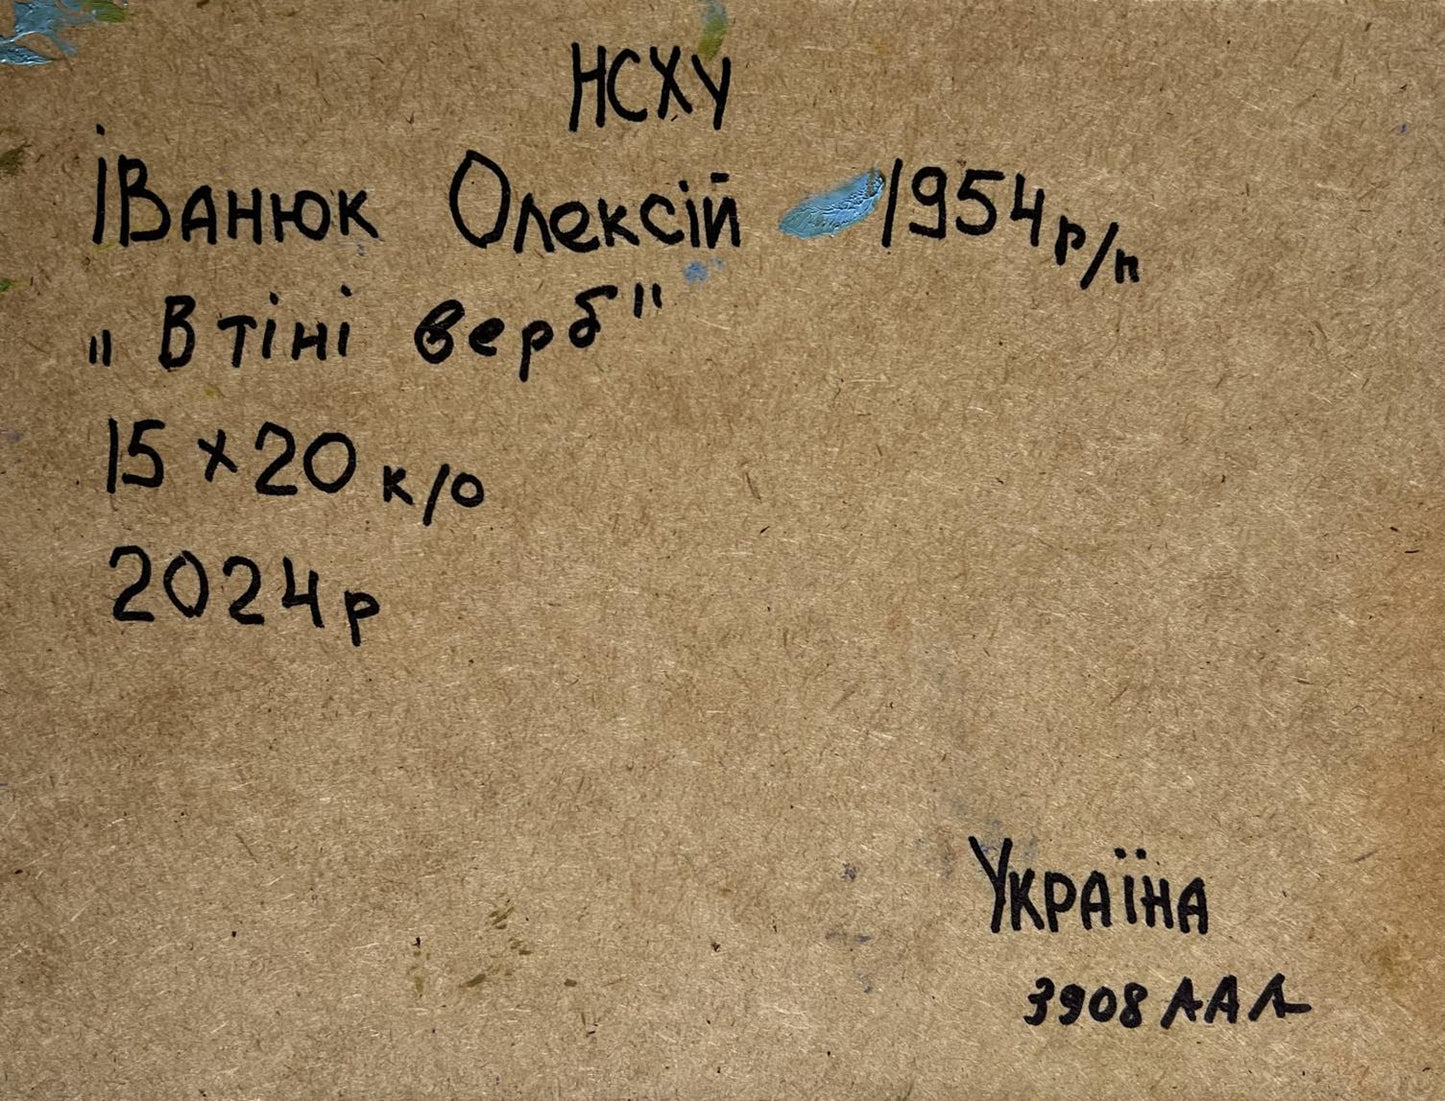 НСХУ
Іванюк Олексій 1954 р/п
„ В тіні верб"
15 × 20 к/о
2024 р
Україна
3908 ААА